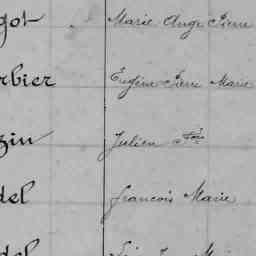 got Marie Ange Pierre
rbier Eugène Pierre Marie
zin Julien
del François Marie
del